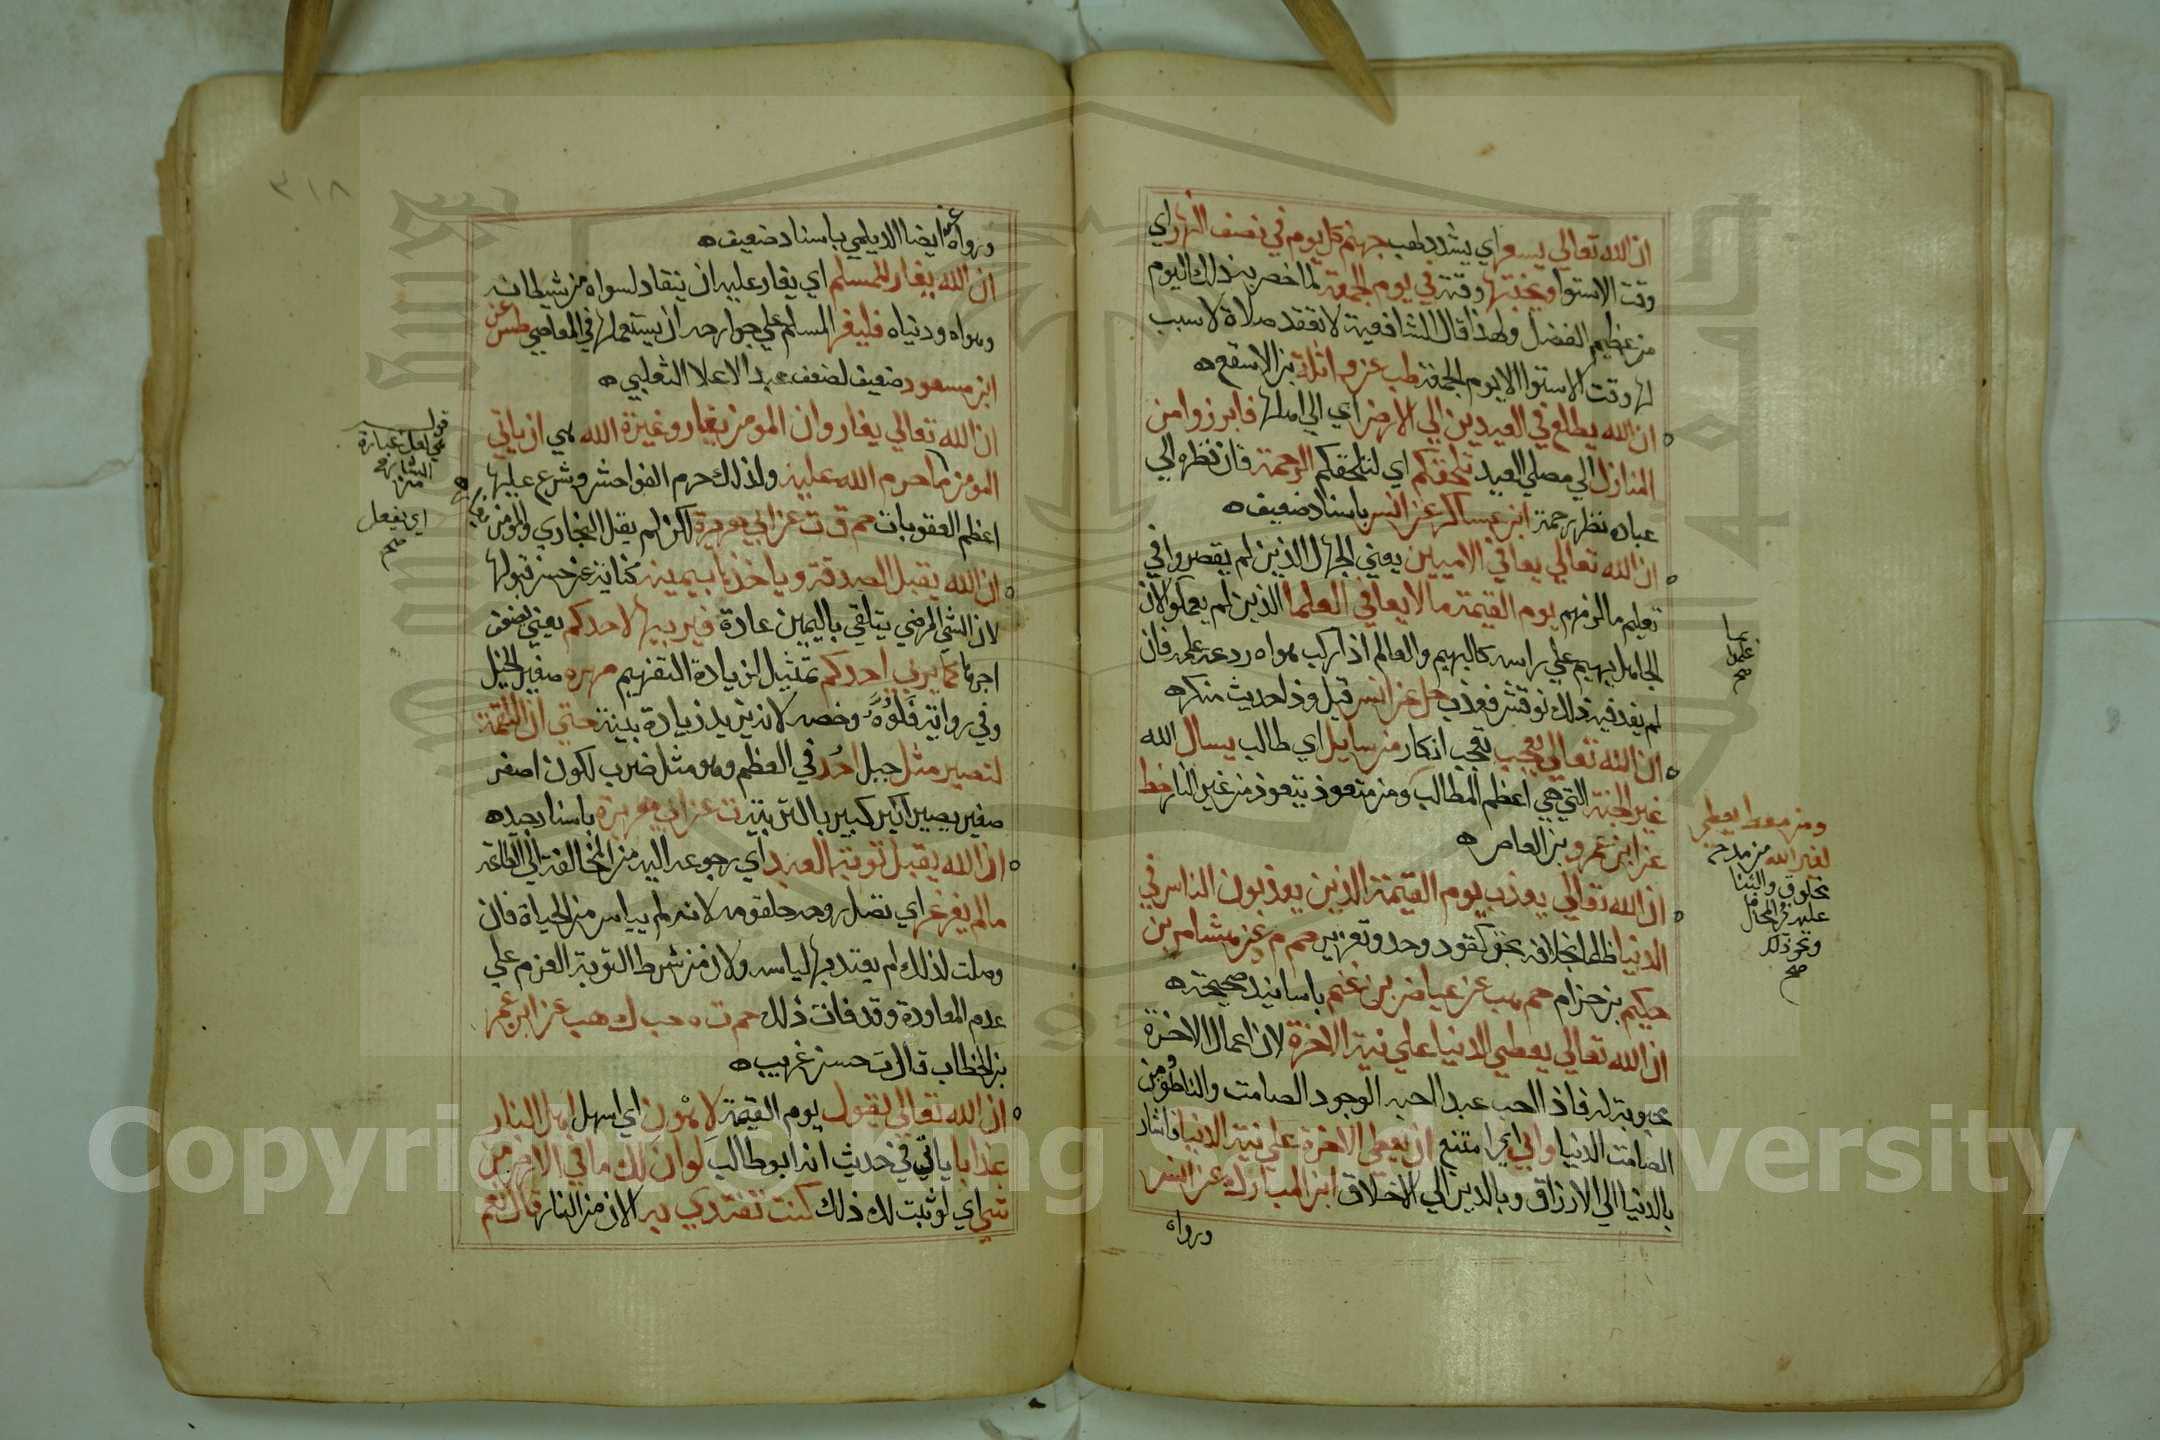 ان الله تعالي يسعر اي يشدد لهب جهنم كل يوم في نصف النهار اي
وقت الاستوا ويخبتها وقته في يوم الجمعة لما خص به ذلك اليوم
من عظيم الفضل ولهذا قال الشافعية لا تنعقد صلاة لا سبب
لها وقت الاستوا الا يوم الجمعة طب عن واثلة بن الاسقع ه
ان الله يطلع في العيدين الي الارض اي الي اهلها فابرزوا من
المنازل الي مصلي العيد تلحقكم اي لتلحقكم الرحمة فان نظره الي
عباده نظر رحمة ابن عساكر عن انس باسناد ضعيف ه
ان الله تعالي يعافي الاميين يعني الجهال الذين لم يقصروا في
تعلم ما لزمهم يوم القيمة ما لا يعافي العلما الذين لم يعملوا لان
الجاهل يهيم علي راسه كالبهيم والعالم اذا ركب هواه ردعه علمه فان
لم يفد فيه ذلك نوقش فعذب حل عن انس قيل وذا حديث منكر ه
ان الله تعالي يعجب تعجب انكار من سايل اي طالب يسال الله
غير الجنة التي هي اعظم المطالب ومن متعوذ يتعوذ من غير النار خط
عن ابن عمرو بن العاص ه
ان الله تعالي يعذب يوم القيمة الذين يعذبون الناس في
الدنيا ظلما بخلافه بحق كقود وحد وتعزير حم م عن هشام بن
حكيم بن حزام حم هب عن عياض بن غنم باسانيد صحيحة ه
ان الله تعالي يعطي الدنيا علي نية الاخرة لان اعمال الاخرة
محبوبة له فاذا احب عبدا احبه الوجود الصامت والناطق ومن
الصامت الدنيا وابي اي امتنع ان يعطي الاخرة علي نية الدنيا فاشار
بالدنيا الي الارزاق وبالدين الي الاخلاق ابن المبارك عن انس
ورواه
بما
علموا
صح
ومن معط يعطي
لغير الله من مدح
مخلوق والثنا
عليه في المحافل
ونحو ذلك
صح
٣١٨
ورواه عنه ايضا الديلمي باسناد ضعيف ه
ان الله يغار للمسلم اي يغار عليه ان ينقاد لسواه من شيطانه
وهواه ودنياه فليغر المسلم علي جوارحه ان يستعملها في المعاصي طس عن
ابن مسعود ضعيف لضعف عبد الاعلا الثعلبي ه
ان الله تعالي يغار وان المومن يغار وغيرة الله هي ان ياتي
المومن ما حرم الله عليه ولذلك حرم الفواحش وشرع عليها
اعظم العقوبات حم ق ت عن ابي هريرة لكن لم يقل البخاري والمومن
ان الله يقبل الصدقة وياخذها بيمينه كناية عن حسن قبولها
لان الشي المرضي يتلقي باليمين عادة فيربيها لاحدكم يعني يضعف
اجرها كما يربي احدكم تمثيل لزيادة التفهيم مهره صغير الخيل
وفي رواية فلوه وخصه لانه يزيد زيادة بينة حتي ان اللقمة
لتصير مثل جبل احد في العظم وهو مثل ضرب لكون اصغر
صغير يصير اكبر كبير بالتربية ت عن ابي هريرة باسناد جيد ه
ان الله يقبل توبة العبد اي رجوعه اليه من المخالفة الي الطاعة
ما لم يغرغر اي تصل روحه حلقومه لانه لم يياس من الحياة فان
وصلت لذلك لم يعتد بها لياسه ولان من شرط التوبة العزم علي
عدم المعاودة وقد فات ذلك حم ت ه حب ك هب عن ابن عمر
بن الخطاب قال ت حسن غريب ه
ان الله تعالي يقول يوم القيمة لاهون اي اسهل اهل النار
عذابا ياتي في حديث انه ابو طالب لو ان لك ما في الارض من
شي اي لو ثبت لك ذلك كنت تفتدي به الان من النار قال نعم
قوله
هي لعل عبارة
الشارح
من
اي يفعل
صح